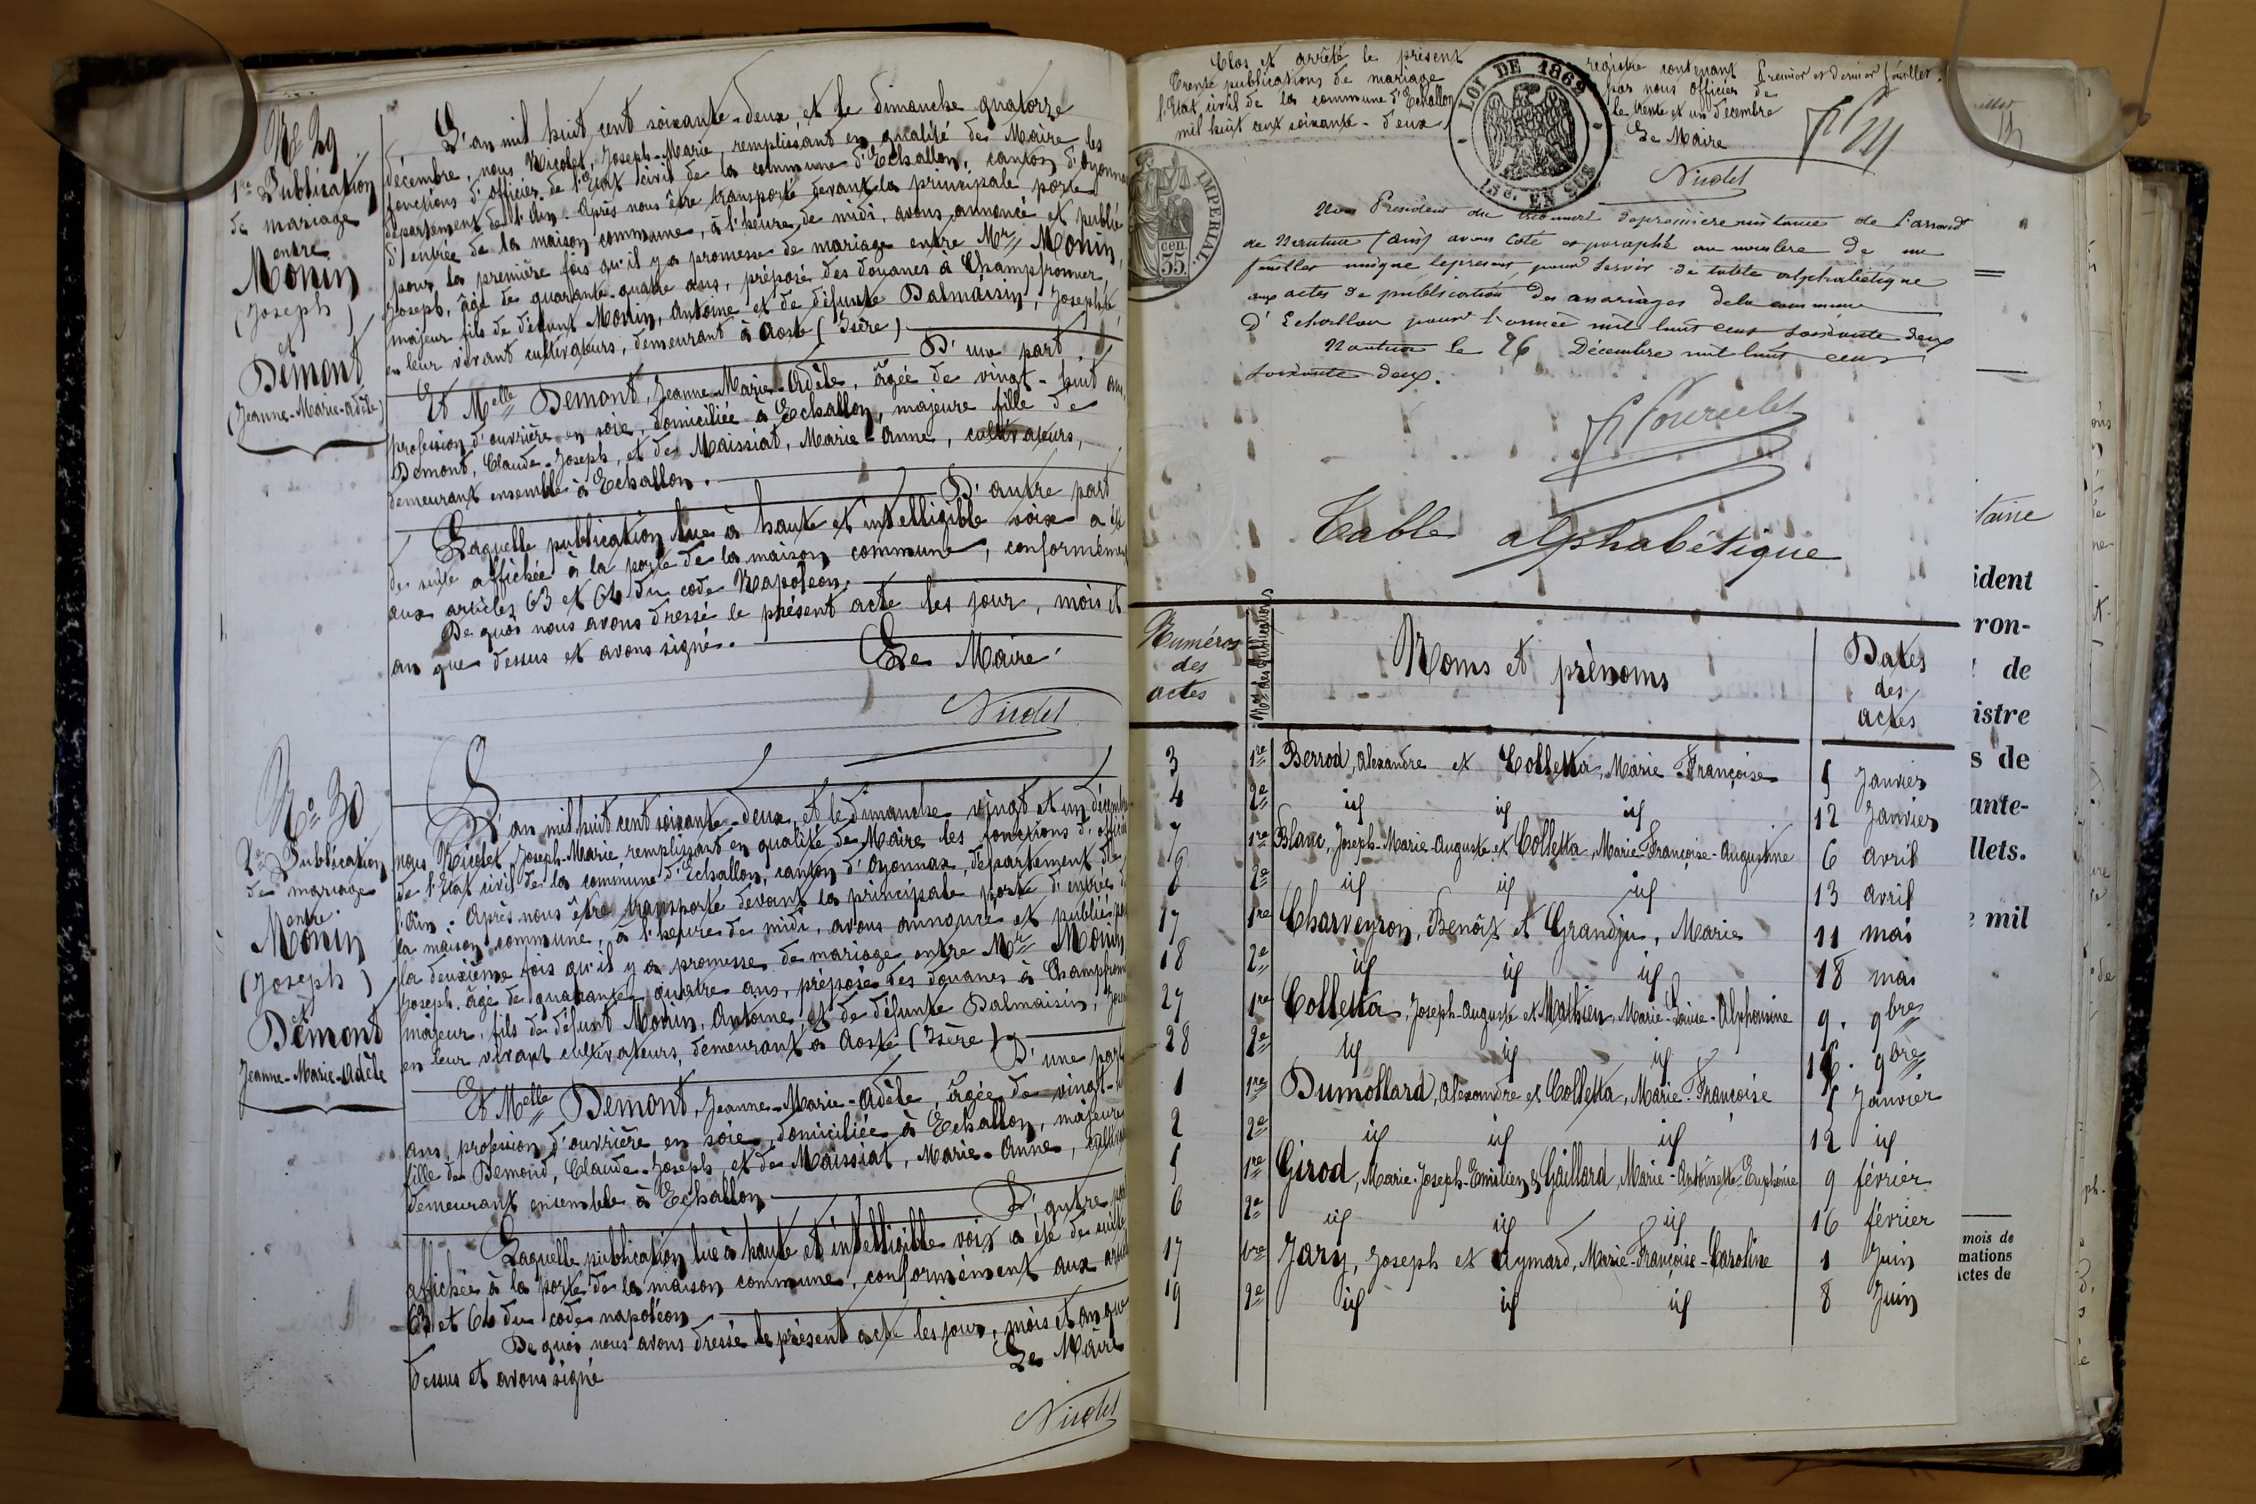 No 29
1re Publication
de mariage
entre
Monin
(Joseph)
et
Démont
(Jeanne-Marie-Adèle)
L'an mil huit cent soixante-deux, et le dimanche quatorze
décembre, nous Nicolet, Joseph-Marie, remplissant en qualité de Maire les
fonctions d'officier de l'Etat civil de la commune d'Echallon, canton d'Oyonna
département de l'Ain. Après nous être transporté devant la principale porte
d'entrée de la maison commune, à l'heure de midi, avons annoncé et publié
pour la première fois qu'il y a promesse de mariage entre Mr Monin,
Joseph, âgé de quarante-quatre ans, préposé des douanes à Champfromier,
majeur fils de défunt Monin, Antoine et de défunte Dalmaisin, Josephte,
en leur vivant cultivateurs, demeurant à Aoste (Isère)
D'une part.
Et Melle Demont, Jeanne-Marie-Adèle, âgée de vingt-huit ans,
profession d'ouvrière en soie, domiciliée à Echallon, majeure fille de
Demont, Claude-Joseph, et de Maissiat, Marie-Anne, cultivateurs,
demeurant ensemble à Echallon.
D'autre part
Laquelle publication lue à haute et intelligible voix a été
de suite affichée à la porte de la maison commune, conformémen
aux articles 63 et 64 du code Napoléon.
De quoi nous avons dressé le présent acte les jour, mois et
an que dessus et avons signé.
Le Maire
Nicolet
No 30
2e Publication
de mariage
entre
Monin
(Joseph)
et
Démont
Jeanne-Marie-Adèle
L'an mil huit cent soixante-deux, et le dimanche vingt et un décembre
nous Nicolet, Joseph-Marie, remplissant en qualité de Maire les fonctions d'officier
de l'Etat civil de la commune d'Echallon, canton d'Oyonnax, département de
l'Ain. Après nous être transporté devant la principale porte d'entrée de
la maison commune, à l'heure de midi, avons annoncé et publié pour
la deuxième fois qu'il y a promesse de mariage entre Mr Monin
Joseph, âgé de quarante-quatre ans, préposé des douanes à Champfrom
majeur, fils de défunt Monin, Antoine et de défunte Dalmaisin,
en leur vivant cultivateurs, demeurant à Aoste (Isère)
D'une part
Et Melle Demont, Jeanne-Marie-Adèle, âgée de vingt-
ans, profession d'ouvrière en soie, domiciliée à Echallon, majeure
fille de Demond, Claude-Joseph, et de Maissiat, Marie-Anne,
demeurant ensemble à Echallon
D'autre part
Laquelle publication lue à haute et intelligible voix a été de suite
affichée à la porte de la maison commune, conformément aux
63 et 64 du code napoléon
De quoi nous avons dressé le présent acte les jour, mois et an que
dessus et avons signé
Le Maire
Nicolet
Clos et arrêté le présent registre contenant Premier et dernier feuillet.
Trente publications de mariage par nous Officier de
l'Etat civil de la commune d'Echallon le trente et un décembre
mil huit cent soixante-deux,
Le Maire
Nicolet
LOI DE 1862
15 c. EN SUS
IMPERIAL.
35 cen.
Nous Président du tribunal de première instance de l'arrond
de Nantua (Ain) avons coté et paraphé au nombre de un
feuillet unique le présent, pour servir de table alphabétique
aux actes de publication des mariages de la commune
d'Echallon pour l'année mil huit cent soixante deux
Nantua le 26 Décembre mil huit cent
soixante deux.
Table alphabétique
Numéros des actes
Nos des Publications
Noms et prénoms
Dates des actes
3 1re Berrod, Alexandre et Colletta, Marie Françoise 5 Janvier
4 2e id id id 12 Janvier
7 1re Blanc, Joseph-Marie-Auguste et Colletta, Marie-Françoise-Augustine 6 avril
8 2e id id id 13 avril
17 1re Charveyron, Benôit et Grandju, Marie 11 mai
18 2e id id id 18 mai
27 1re Colletta, Joseph-Auguste et Mathieu, Marie-Louise-Alphonsine 9. 9bre
28 2e id id id 16. 9bre
1 1re Dumollard, Alexandre et Colletta, Marie-Françoise 5 Janvier
2 2e id id id 12 id
5 1re Girod, Marie-Joseph-Emilien & Gaillard, Marie-Antoinette-Euphénie 9 février
6 2e id id id 16 février
17 1re Jary, Joseph et Aymard, Marie-Françoise-Caroline 1 Juin
19 2e id id id 8 Juin
taine
ident
ron-
de
istre
s de
ante-
llets.
mil
mois de
mations
actes de